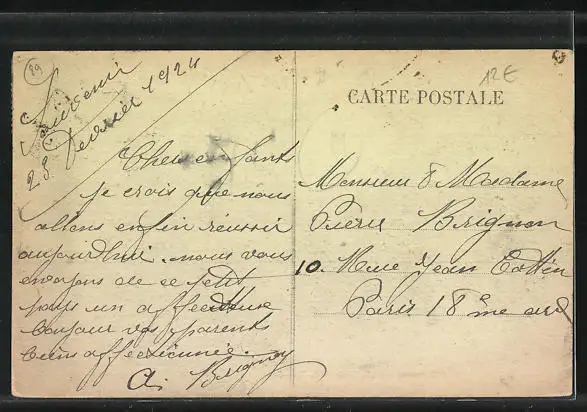 89
12€
CARTE POSTALE
Souvenir
23 Février 1924
Chers enfants
je crois que nous
allons enfin réussir
aujourdhui. nous vous
envoyons de ce petit
pays un affectueuse
bonjour vos parents
biens affectionnée.
A. Brignon
Monsieur & Madame
Pierre Brignon
10. Rue Jean Cottin
Paris 18ème ard